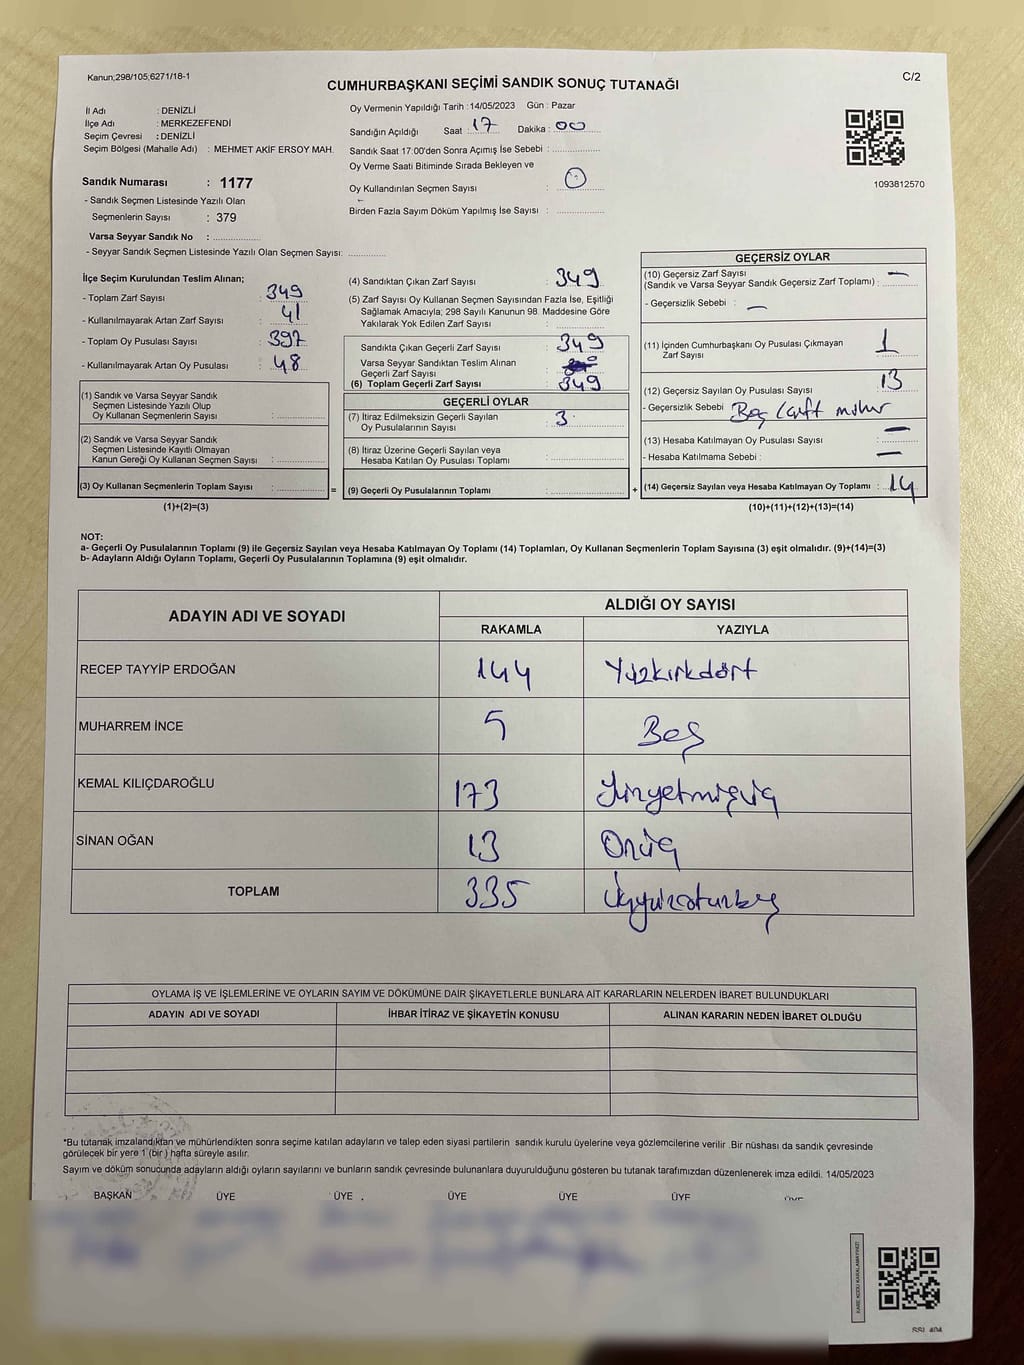 Kanun;298/105,6271/18-1
C/2
CUMHURBAŞKANI SEÇİMİ SANDIK SONUÇ TUTANAĞI
İl Adı : DENİZLİ
İlçe Adı : MERKEZEFENDİ
Seçim Çevresi : DENİZLİ
Seçim Bölgesi (Mahalle Adı) : MEHMET AKİF ERSOY MAH.
Sandık Numarası : 1177
- Sandık Seçmen Listesinde Yazılı Olan
Seçmenlerin Sayısı : 379
Varsa Seyyar Sandık No :
- Seyyar Sandık Seçmen Listesinde Yazılı Olan Seçmen Sayısı:
Oy Vermenin Yapıldığı Tarih :14/05/2023 Gün : Pazar
Sandığın Açıldığı Saat : 17 Dakika : 00
Sandık Saat 17:00'den Sonra Açımış İse Sebebi :
Oy Verme Saati Bitiminde Sırada Bekleyen ve
Oy Kullandırılan Seçmen Sayısı : 0
Birden Fazla Sayım Döküm Yapılmış İse Sayısı :
1093812570
İlçe Seçim Kurulundan Teslim Alınan;
- Toplam Zarf Sayısı : 349
- Kullanılmayarak Artan Zarf Sayısı : 41
- Toplam Oy Pusulası Sayısı : 397
- Kullanılmayarak Artan Oy Pusulası : 48
(1) Sandık ve Varsa Seyyar Sandık
Seçmen Listesinde Yazılı Olup
Oy Kullanan Seçmenlerin Sayısı :
(2) Sandık ve Varsa Seyyar Sandık
Seçmen Listesinde Kayıtlı Olmayan
Kanun Gereği Oy Kullanan Seçmen Sayısı :
(3) Oy Kullanan Seçmenlerin Toplam Sayısı :
(1)+(2)=(3)
=
(4) Sandıktan Çıkan Zarf Sayısı : 349
(5) Zarf Sayısı Oy Kullanan Seçmen Sayısından Fazla İse, Eşitliği
Sağlamak Amacıyla; 298 Sayılı Kanunun 98. Maddesine Göre
Yakılarak Yok Edilen Zarf Sayısı :
Sandıkta Çıkan Geçerli Zarf Sayısı : 349
Varsa Seyyar Sandıktan Teslim Alınan
Geçerli Zarf Sayısı :
(6) Toplam Geçerli Zarf Sayısı : 349
GEÇERLİ OYLAR
(7) İtiraz Edilmeksizin Geçerli Sayılan
Oy Pusulalarının Sayısı : 3
(8) İtiraz Üzerine Geçerli Sayılan veya
Hesaba Katılan Oy Pusulası Toplamı :
(9) Geçerli Oy Pusulalarının Toplamı :
+
GEÇERSİZ OYLAR
(10) Geçersiz Zarf Sayısı
(Sandık ve Varsa Seyyar Sandık Geçersiz Zarf Toplamı) : —
- Geçersizlik Sebebi : —
(11) İçinden Cumhurbaşkanı Oy Pusulası Çıkmayan
Zarf Sayısı : 1
(12) Geçersiz Sayılan Oy Pusulası Sayısı : 13
- Geçersizlik Sebebi : Boş / çift mühür
(13) Hesaba Katılmayan Oy Pusulası Sayısı : —
- Hesaba Katılmama Sebebi : —
(14) Geçersiz Sayılan veya Hesaba Katılmayan Oy Toplamı : 14
(10)+(11)+(12)+(13)=(14)
NOT:
a- Geçerli Oy Pusulalarının Toplamı (9) ile Geçersiz Sayılan veya Hesaba Katılmayan Oy Toplamı (14) Toplamları, Oy Kullanan Seçmenlerin Toplam Sayısına (3) eşit olmalıdır. (9)+(14)=(3)
b- Adayların Aldığı Oyların Toplamı, Geçerli Oy Pusulalarının Toplamına (9) eşit olmalıdır.
ADAYIN ADI VE SOYADI
ALDIĞI OY SAYISI
RAKAMLA YAZIYLA
RECEP TAYYİP ERDOĞAN 144 Yüzkırkdört
MUHARREM İNCE 5 Beş
KEMAL KILIÇDAROĞLU 173 Yüzyetmişüç
SİNAN OĞAN 13 Onüç
TOPLAM 335 Üçyüzotuzbeş
OYLAMA İŞ VE İŞLEMLERİNE VE OYLARIN SAYIM VE DÖKÜMÜNE DAİR ŞİKAYETLERLE BUNLARA AİT KARARLARIN NELERDEN İBARET BULUNDUKLARI
ADAYIN ADI VE SOYADI İHBAR İTİRAZ VE ŞİKAYETİN KONUSU ALINAN KARARIN NEDEN İBARET OLDUĞU
*Bu tutanak imzalandıktan ve mühürlendikten sonra seçime katılan adayların ve talep eden siyasi partilerin sandık kurulu üyelerine veya gözlemcilerine verilir .Bir nüshası da sandık çevresinde
görülecek bir yere 1 (bir ) hafta süreyle asılır.
Sayım ve döküm sonucunda adayların aldığı oyların sayılarını ve bunların sandık çevresinde bulunanlara duyurulduğunu gösteren bu tutanak tarafımızdan düzenlenerek imza edildi. 14/05/2023
BAŞKAN ÜYE ÜYE ÜYE ÜYE ÜYE ÜYE
KARE KODU KARALAMAYINIZ!